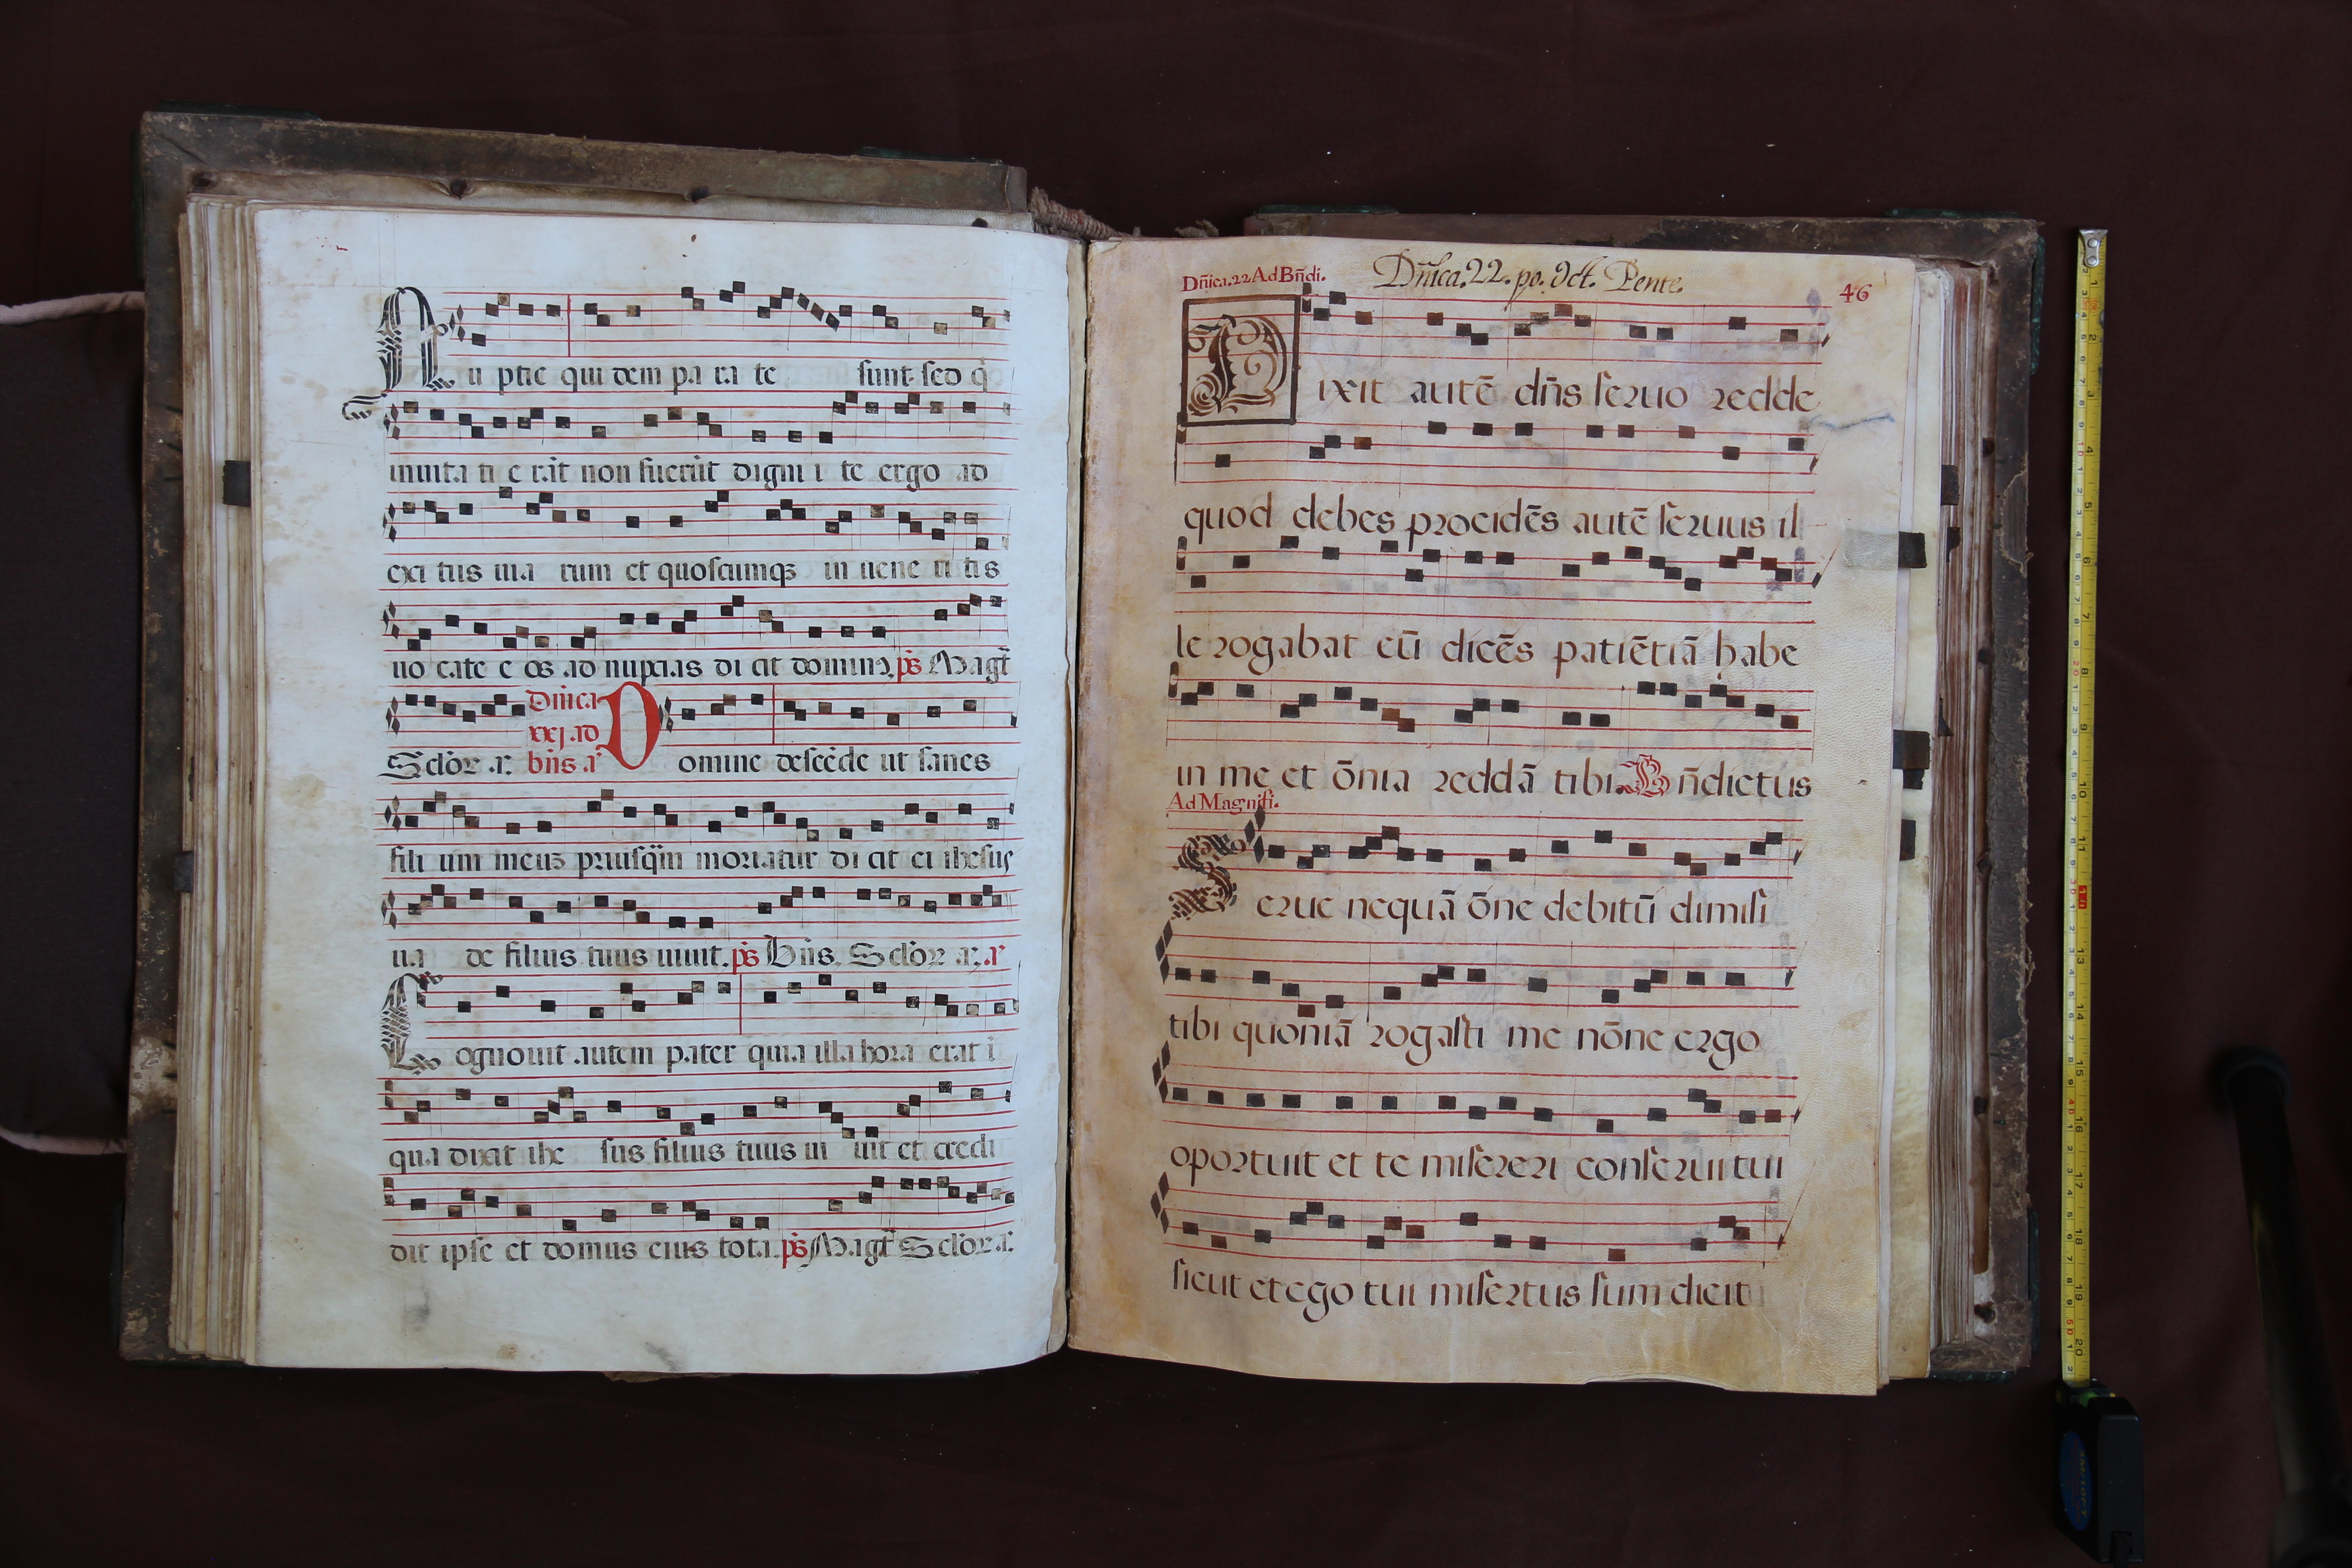 Nu ptie qui dem pa ra te sunt sed q̇
inuita ti e rāt non fuerūt digni i te ergo ad
exi tus uia rum et quoscumqȝ in uene ri tis
uo cate e os ad nupcias di cit dominꝰ. ps̄ Magt̄
Dn̄ica
xxj. ad
Sclōꝝ. a. bn̄s a Domine descēde ut sanes
fili um meuȝ priusq̄m moriatur di cit ei ihesus
ua de filius tuus uiuit. ps̄ Bn̄s. Sclōꝝ a. a
Cognouit autem pater quia illa hora erat i
qua dixit ihe sus filius tuus ui uit et credi
dit ipse et domus eius tota. ps̄ Magt̄ Sclōꝝ. a.
Dn̄ica. 22 Ad Bn̄di. Dn̄ica. 22. po. Oct. Pente. 46
Dixit autē dn̄s seruo redde
quod debes procidēs autē seruus il
le rogabat eū dicēs patiētiā habe
in me et ōnia reddā tibi. Bn̄dictus
Ad Magnifi.
Serue nequā ōne debitū dimisi
tibi quoniā rogasti me nōne ergo
oportuit et te misereri conserui tui
sicut et ego tui misertus sum dicit